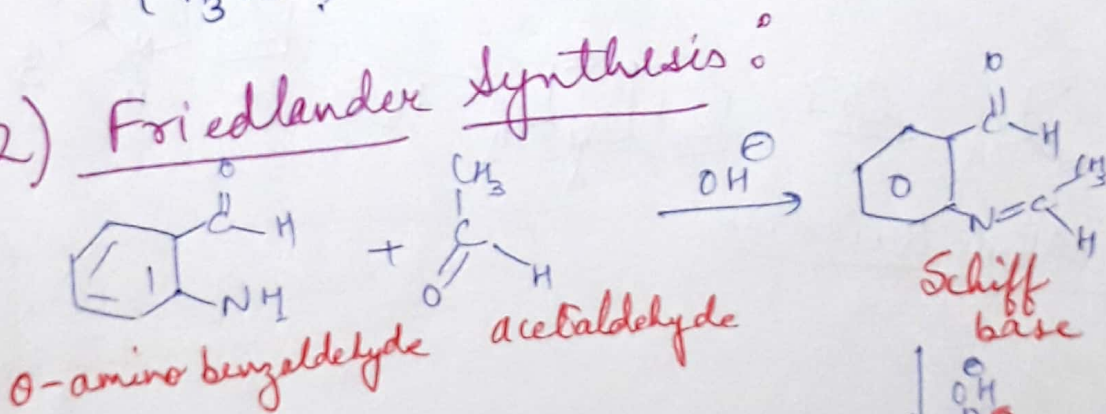 3
2) Friedlander Synthesis :
O
C-H
NH2
+
CH3
C
O
H
OH⊖
O
C-H
CH3
N=C
H
o-amino benzaldehyde
acetaldehyde
Schiff
base
⊖
OH